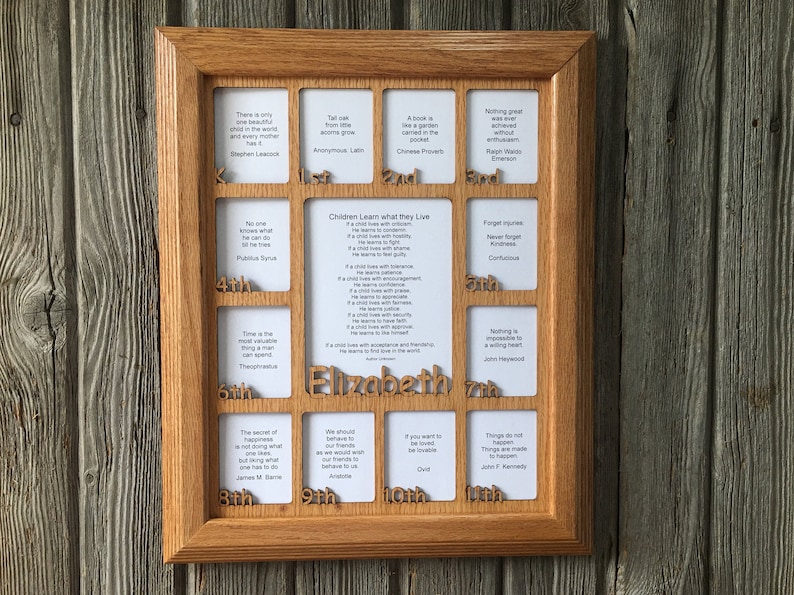 There is only
one beautiful
child in the world,
and every mother
has it
Stephen Leacock
K
Tall oak
from little
acorns grow.
Anonymous: Latin
1st
A book is
like a garden
carried in the
pocket.
Chinese Proverb
2nd
Nothing great
was ever
achieved
without
enthusiasm.
Ralph Waldo
Emerson
3rd
No one
knows what
he can do
till he tries
Publilus Syrus
4th
Children Learn what they Live
If a child lives with criticism,
He learns to condemn.
If a child lives with hostility,
He learns to fight.
If a child lives with shame,
He learns to feel guilty.
If a child lives with tolerance,
He learns patience.
If a child lives with encouragement,
He learns confidence
If a child lives with praise,
He learns to appreciate.
If a child lives with fairness,
He learns justice.
If a child lives with security,
He learns to have faith.
If a child lives with approval,
He learns to like himself.
If a child lives with acceptance and friendship,
He learns to find love in the world.
Author Unknown
Elizabeth
Forget injuries:
Never forget
Kindness.
Confucious
5th
Time is the
most valuable
thing a man
can spend.
Theophrastus
6th
Nothing is
impossible to
a willing heart.
John Heywood
7th
The secret of
happiness
is not doing what
one likes,
but liking what
one has to do
James M. Barrie
8th
We should
behave to
our friends
as we would wish
our friends to
behave to us
Aristotle
9th
If you want to
be loved,
be lovable.
Ovid
10th
Things do not
happen.
Things are made
to happen
John F. Kennedy
11th